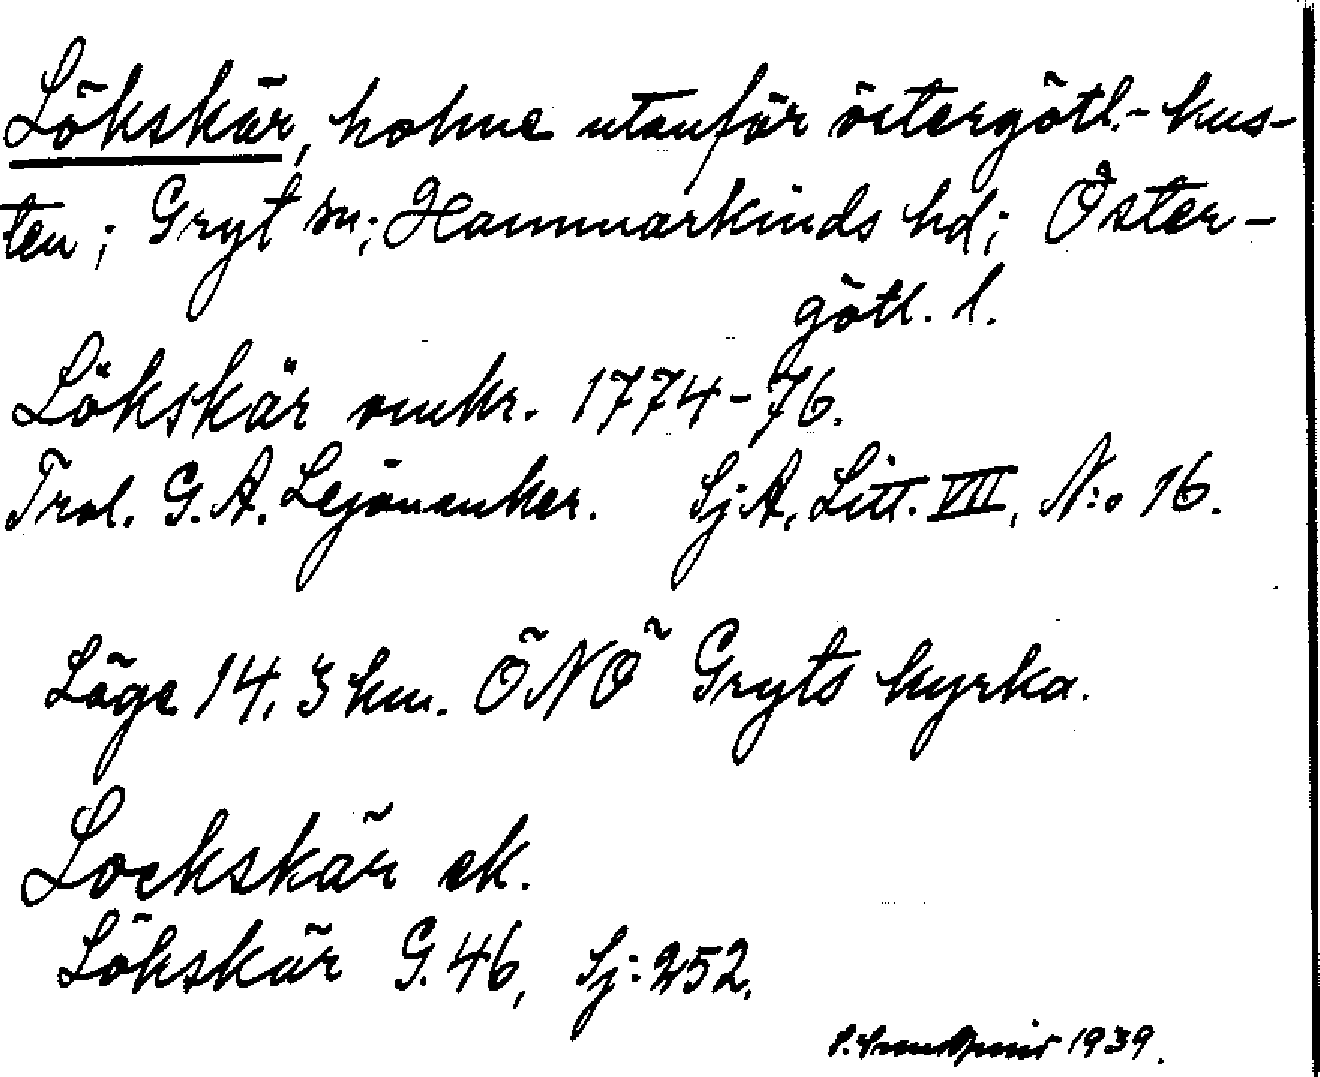 Lökskär, holme utanför östergötl.- kus-
ten; Gryt sn; Hammarkinds hd; Öster-
götl. l.
Lökskär omkr. 1774-76.
Trol. G. A. Lejonanker. SjA, Litt. VII, N:o 16.
Läge 14,3 km. ÖNÖ Gryts kyrka.
Lockskär ek.
Lökskär G. 46, Sj: 252.
1939.